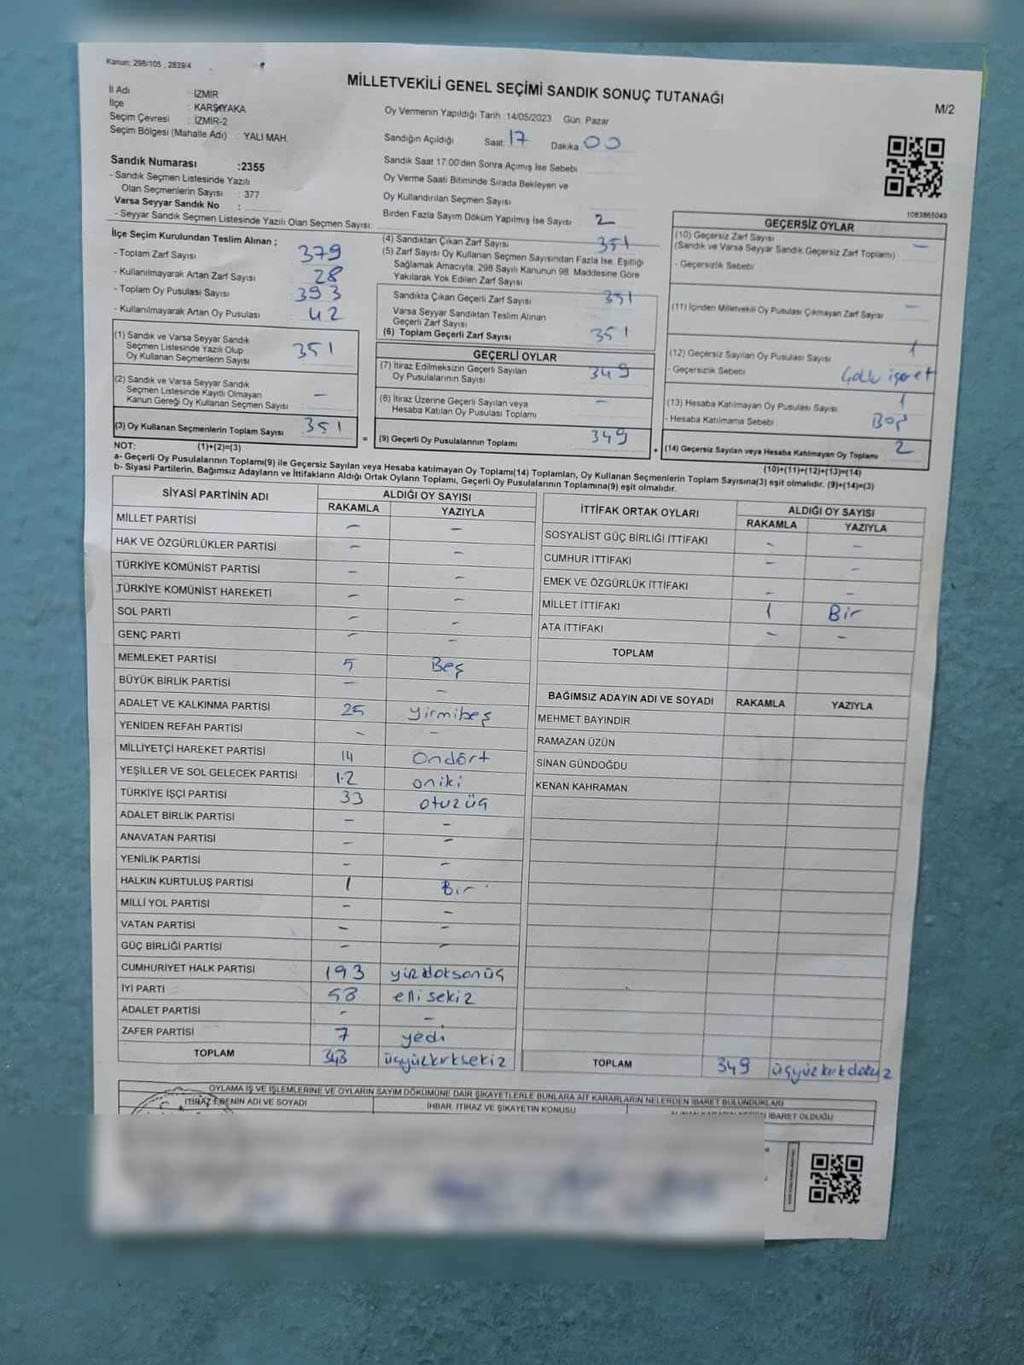 Kanun: 298/105 , 2839/4
MİLLETVEKİLİ GENEL SEÇİMİ SANDIK SONUÇ TUTANAĞI
M/2
İl Adı : İZMİR
İlçe : KARŞIYAKA
Seçim Çevresi : İZMİR-2
Seçim Bölgesi (Mahalle Adı) : YALI MAH.
Oy Vermenin Yapıldığı Tarih :14/05/2023 Gün: Pazar
Sandığın Açıldığı Saat: 17 Dakika 00
Sandık Saat 17:00'den Sonra Açılmış İse Sebebi
Oy Verme Saati Bitiminde Sırada Bekleyen ve
Oy Kullandırılan Seçmen Sayısı
Birden Fazla Sayım Döküm Yapılmış İse Sayısı 2
Sandık Numarası :2355
- Sandık Seçmen Listesinde Yazılı
Olan Seçmenlerin Sayısı : 377
Varsa Seyyar Sandık No :
- Seyyar Sandık Seçmen Listesinde Yazılı Olan Seçmen Sayısı:
İlçe Seçim Kurulundan Teslim Alınan ;
- Toplam Zarf Sayısı 379
- Kullanılmayarak Artan Zarf Sayısı 28
- Toplam Oy Pusulası Sayısı 393
- Kullanılmayarak Artan Oy Pusulası 42
(1) Sandık ve Varsa Seyyar Sandık
Seçmen Listesinde Yazılı Olup
Oy Kullanan Seçmenlerin Sayısı 351
(2) Sandık ve Varsa Seyyar Sandık
Seçmen Listesinde Kayıtlı Olmayan
Kanun Gereği Oy Kullanan Seçmen Sayısı –
(3) Oy Kullanan Seçmenlerin Toplam Sayısı 351
(4) Sandıktan Çıkan Zarf Sayısı 351
(5) Zarf Sayısı Oy Kullanan Seçmen Sayısından Fazla İse, Eşitliği
Sağlamak Amacıyla, 298 Sayılı Kanunun 98. Maddesine Göre
Yakılarak Yok Edilen Zarf Sayısı
Sandıkta Çıkan Geçerli Zarf Sayısı 351
Varsa Seyyar Sandıktan Teslim Alınan
Geçerli Zarf Sayısı
(6) Toplam Geçerli Zarf Sayısı 351
GEÇERLİ OYLAR
(7) İtiraz Edilmeksizin Geçerli Sayılan
Oy Pusulalarının Sayısı 349
(8) İtiraz Üzerine Geçerli Sayılan veya
Hesaba Katılan Oy Pusulası Toplamı –
= (9) Geçerli Oy Pusulalarının Toplamı 349
1083865049
GEÇERSİZ OYLAR
(10) Geçersiz Zarf Sayısı
(Sandık ve Varsa Seyyar Sandık Geçersiz Zarf Toplamı) –
- Geçersizlik Sebebi
(11) İçinden Milletvekili Oy Pusulası Çıkmayan Zarf Sayısı –
(12) Geçersiz Sayılan Oy Pusulası Sayısı 1
- Geçersizlik Sebebi işaret
(13) Hesaba Katılmayan Oy Pusulası Sayısı 1
- Hesaba Katılmama Sebebi Boş
+ (14) Geçersiz Sayılan veya Hesaba Katılmayan Oy Toplamı 2
NOT: (1)+(2)=(3)
(10)+(11)+(12)+(13)=(14)
a- Geçerli Oy Pusulalarının Toplamı(9) ile Geçersiz Sayılan veya Hesaba katılmayan Oy Toplamı(14) Toplamları, Oy Kullanan Seçmenlerin Toplam Sayısına(3) eşit olmalıdır. (9)+(14)=(3)
b- Siyasi Partilerin, Bağımsız Adayların ve İttifakların Aldığı Ortak Oyların Toplamı, Geçerli Oy Pusulalarının Toplamına(9) eşit olmalıdır.
SİYASİ PARTİNİN ADI ALDIĞI OY SAYISI
RAKAMLA YAZIYLA
MİLLET PARTİSİ – –
HAK VE ÖZGÜRLÜKLER PARTİSİ – –
TÜRKİYE KOMÜNİST PARTİSİ – –
TÜRKİYE KOMÜNİST HAREKETİ – –
SOL PARTİ – –
GENÇ PARTİ – –
MEMLEKET PARTİSİ 5 Beş
BÜYÜK BİRLİK PARTİSİ – –
ADALET VE KALKINMA PARTİSİ 25 yirmibeş
YENİDEN REFAH PARTİSİ – –
MİLLİYETÇİ HAREKET PARTİSİ 14 Ondört
YEŞİLLER VE SOL GELECEK PARTİSİ 12 oniki
TÜRKİYE İŞÇİ PARTİSİ 33 otuzüç
ADALET BİRLİK PARTİSİ – –
ANAVATAN PARTİSİ – –
YENİLİK PARTİSİ – –
HALKIN KURTULUŞ PARTİSİ 1 Bir
MİLLİ YOL PARTİSİ – –
VATAN PARTİSİ – –
GÜÇ BİRLİĞİ PARTİSİ – –
CUMHURİYET HALK PARTİSİ 193 yüzdoksanüç
İYİ PARTİ 58 ellisekiz
ADALET PARTİSİ – –
ZAFER PARTİSİ 7 yedi
TOPLAM 348 üçyüzkırksekiz
İTTİFAK ORTAK OYLARI ALDIĞI OY SAYISI
RAKAMLA YAZIYLA
SOSYALİST GÜÇ BİRLİĞİ İTTİFAKI – –
CUMHUR İTTİFAKI – –
EMEK VE ÖZGÜRLÜK İTTİFAKI – –
MİLLET İTTİFAKI 1 Bir
ATA İTTİFAKI – –
TOPLAM
BAĞIMSIZ ADAYIN ADI VE SOYADI RAKAMLA YAZIYLA
MEHMET BAYINDIR
RAMAZAN ÜZÜN
SİNAN GÜNDOĞDU
KENAN KAHRAMAN
TOPLAM 349 üçyüzkırkdokuz
OYLAMA İŞ VE İŞLEMLERİNE VE OYLARIN SAYIM DÖKÜMÜNE DAİR ŞİKAYETLERLE BUNLARA AİT KARARLARIN NELERDEN İBARET BULUNDUKLARI
İTİRAZ EDENİN ADI VE SOYADI İHBAR, İTİRAZ VE ŞİKAYETİN KONUSU İBARET OLDUĞU